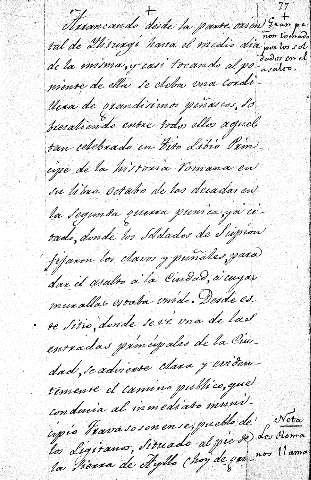 77
Arrancando desde la parte orien
tal de Ilsurgi hasta el medio dia
de la misma, y casi tocando al po-
niente de ella se eleba una cordi-
llera de grandisimos peñascos, So-
bresaliendo entre todos ellos aquel
tan celebrado en Tito Libio Prin-
cipe de la historia romana en
su libro octabo de las decadas en
la Segunda guerra punica, ya ci-
tado, donde los Soldados de Scipion
fijaron los clavos y puñales, para
dar el asalto á la Ciudad, á cuya
muralla estaba unido. Desde es-
te Sitio, donde se vé una de las
entradas principales de la Ciu-
dad, se advierte clara y eviden-
temente el camino publico, que
conducia al inmediato muni-
cipio Vravasosonense, pueblo de
los Ligitanos, Situado al pie de
la Sierra de Ayllo (hoy de
Gran pe
ñon
por los sol
dados en el
asalto.
Nota
Los Roma
nos llama